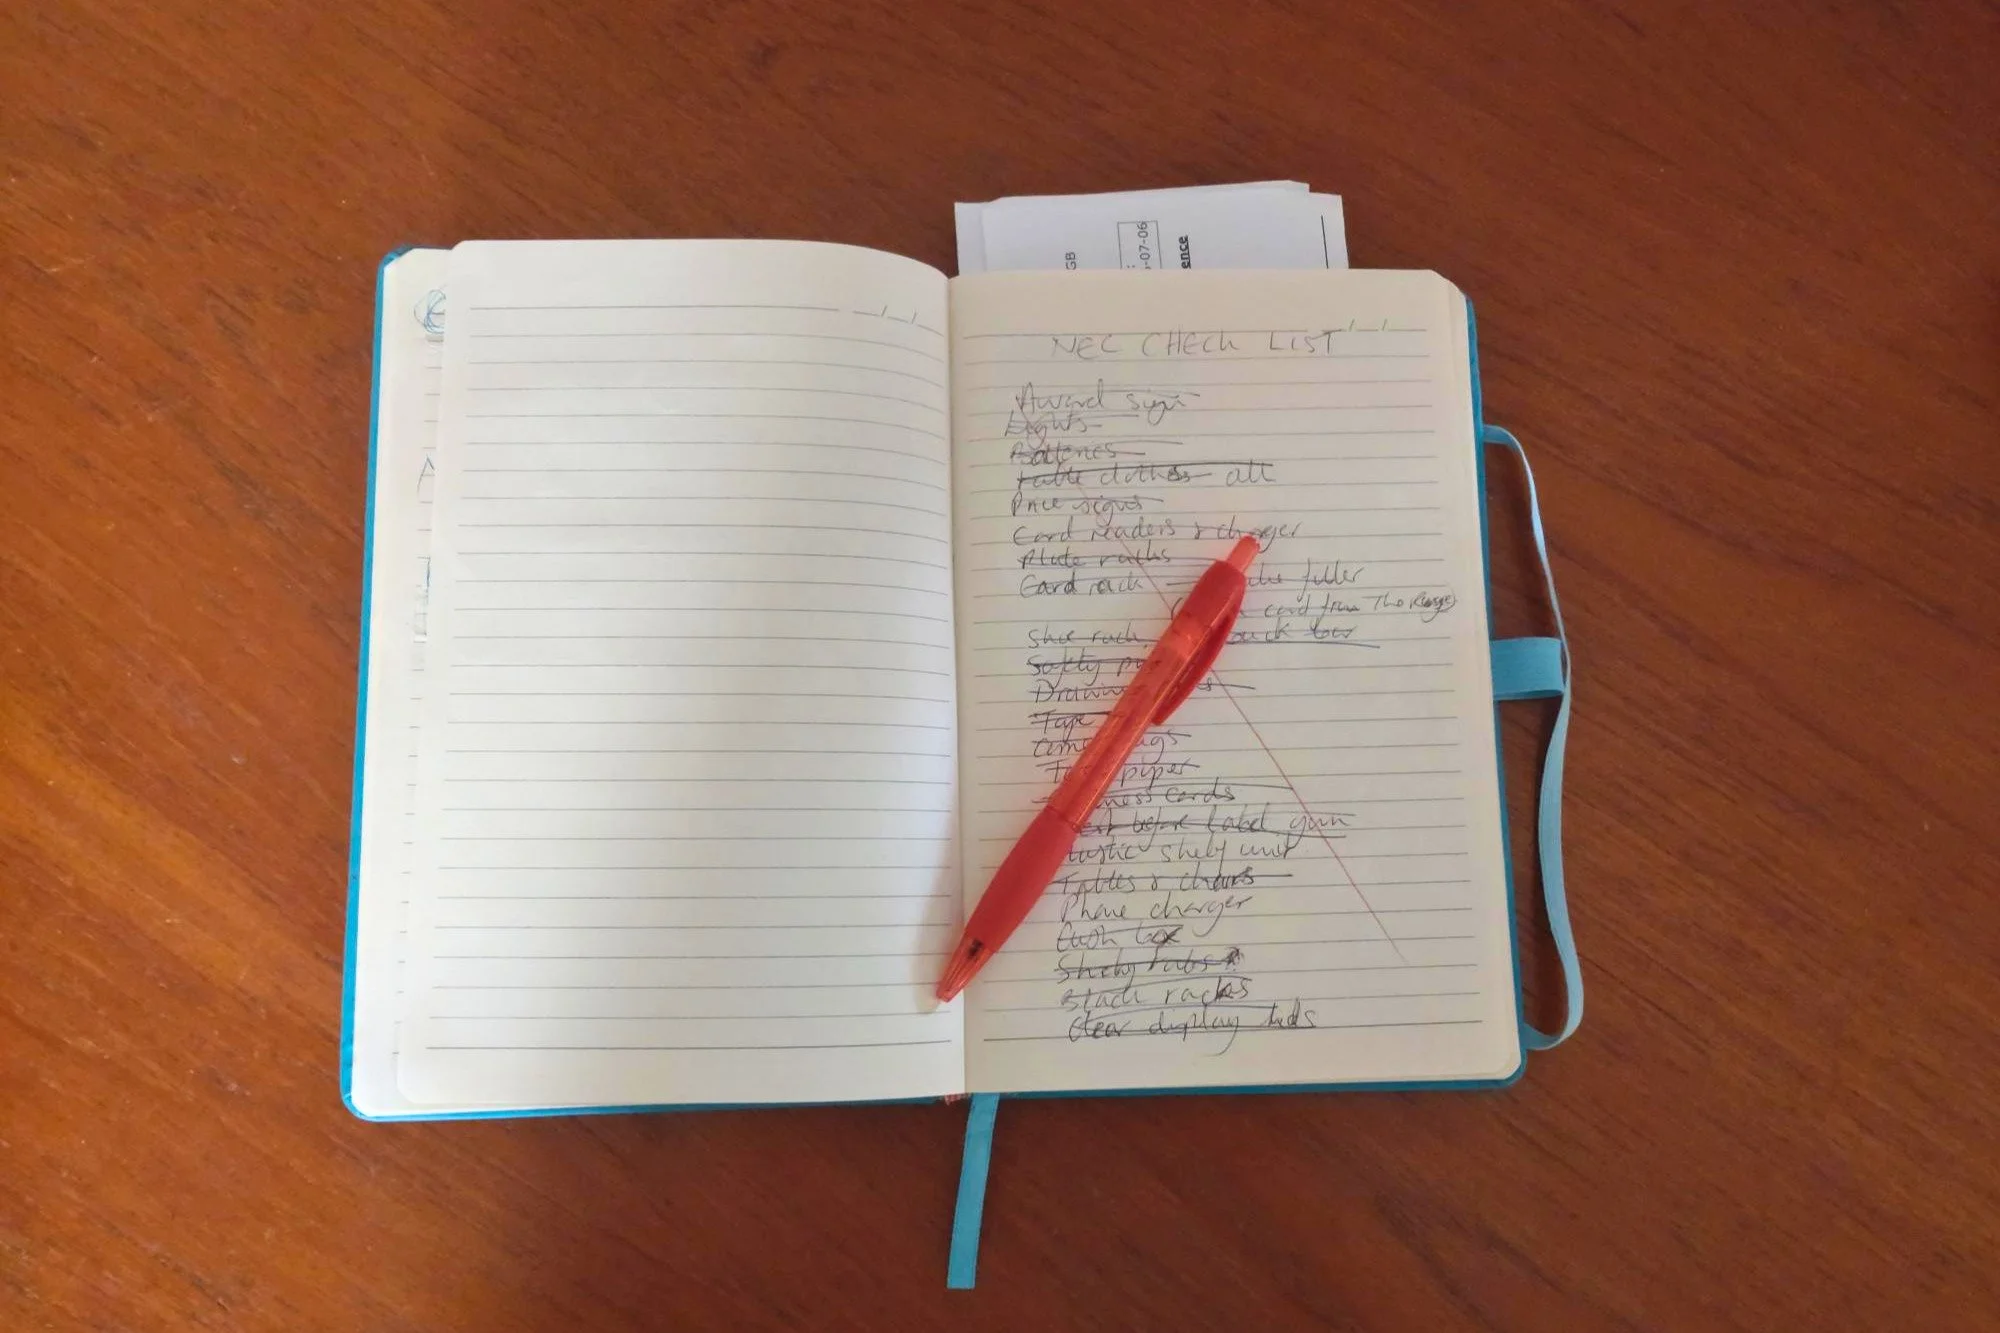 GB
-07-06
ence
NEC CHECK LIST
Award sign
Lights
Batteries
Table clothes all
Price signs
Card readers & charger
Plate racks
Card rack filler
card from The Range)
Shoe rack
Safety
Tape
piper
cards
before label gun
shelf unit
Tables & chairs
Phone charger
Cash box
Shelf
Black racks
Clear display